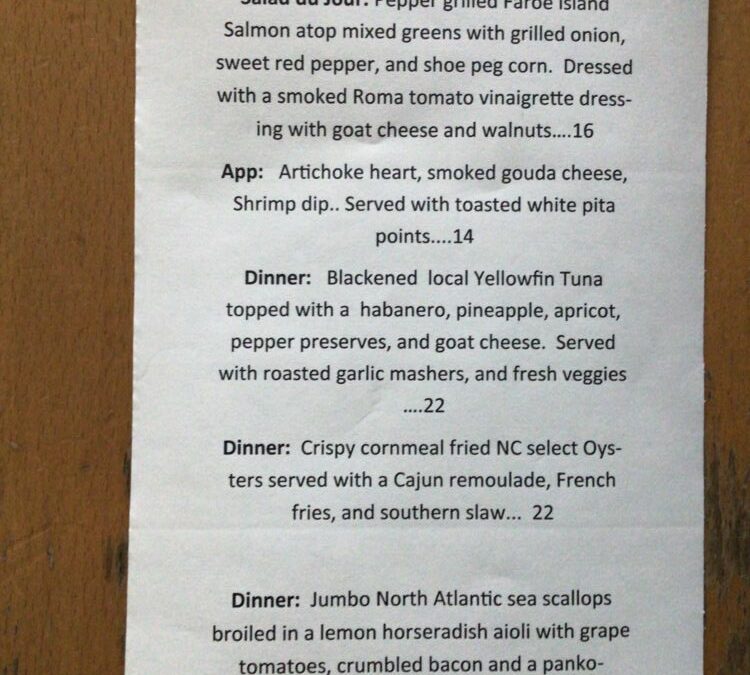 Salad du Jour: Pepper grilled Faroe Island
Salmon atop mixed greens with grilled onion,
sweet red pepper, and shoe peg corn.  Dressed
with a smoked Roma tomato vinaigrette dress-
ing with goat cheese and walnuts....16
App:   Artichoke heart, smoked gouda cheese,
Shrimp dip.. Served with toasted white pita
points....14
Dinner:   Blackened  local Yellowfin Tuna
topped with a  habanero, pineapple, apricot,
pepper preserves, and goat cheese.  Served
with roasted garlic mashers, and fresh veggies
....22
Dinner:  Crispy cornmeal fried NC select Oys-
ters served with a Cajun remoulade, French
fries, and southern slaw...  22
Dinner:  Jumbo North Atlantic sea scallops
broiled in a lemon horseradish aioli with grape
tomatoes, crumbled bacon and a panko-